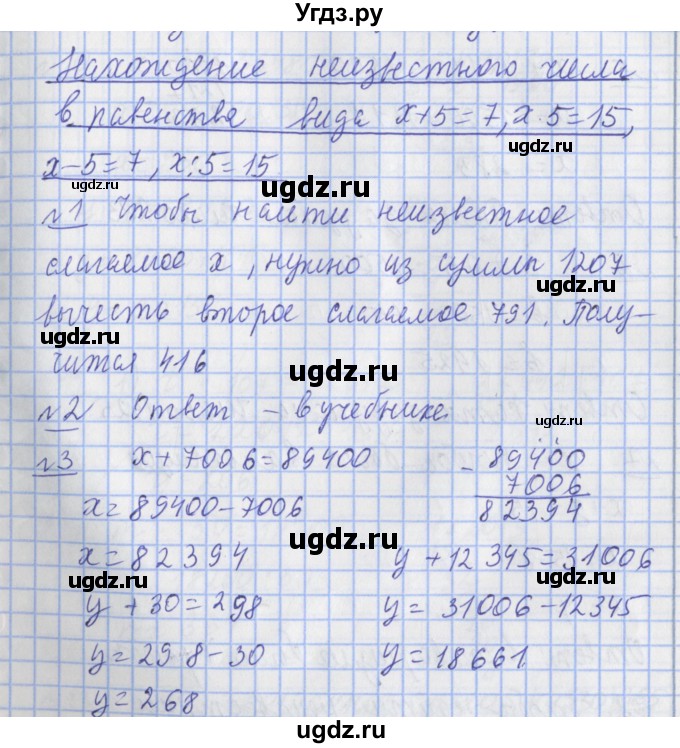 Угдз.ру
Нахождение неизвестного числа
в равенства вида x+5=7, x·5=15,
ugdz.ru
x-5=7, x:5=15
ugdz.ru ugdz.ru
№1 Чтобы найти неизвестное
ugdz.ru
слагаемое x, нужно из суммы 1207
ugdz.ru
вычесть второе слагаемое 791. Полу-
ugdz.ru ugdz.ru
чится 416
ugdz.ru
№2 Ответ - в учебнике.
ugdz.ru
№3 x+7006=89400
- 89400
7006
82394
ugdz.ru
x=89400-7006
ugdz.ru
x=82394 y+12345=31006
ugdz.ru ugdz.ru
y+30=298 y=31006-12345
ugdz.ru
y=298-30 y=18661
ugdz.ru
y=268
ugdz.ru ugdz.ru